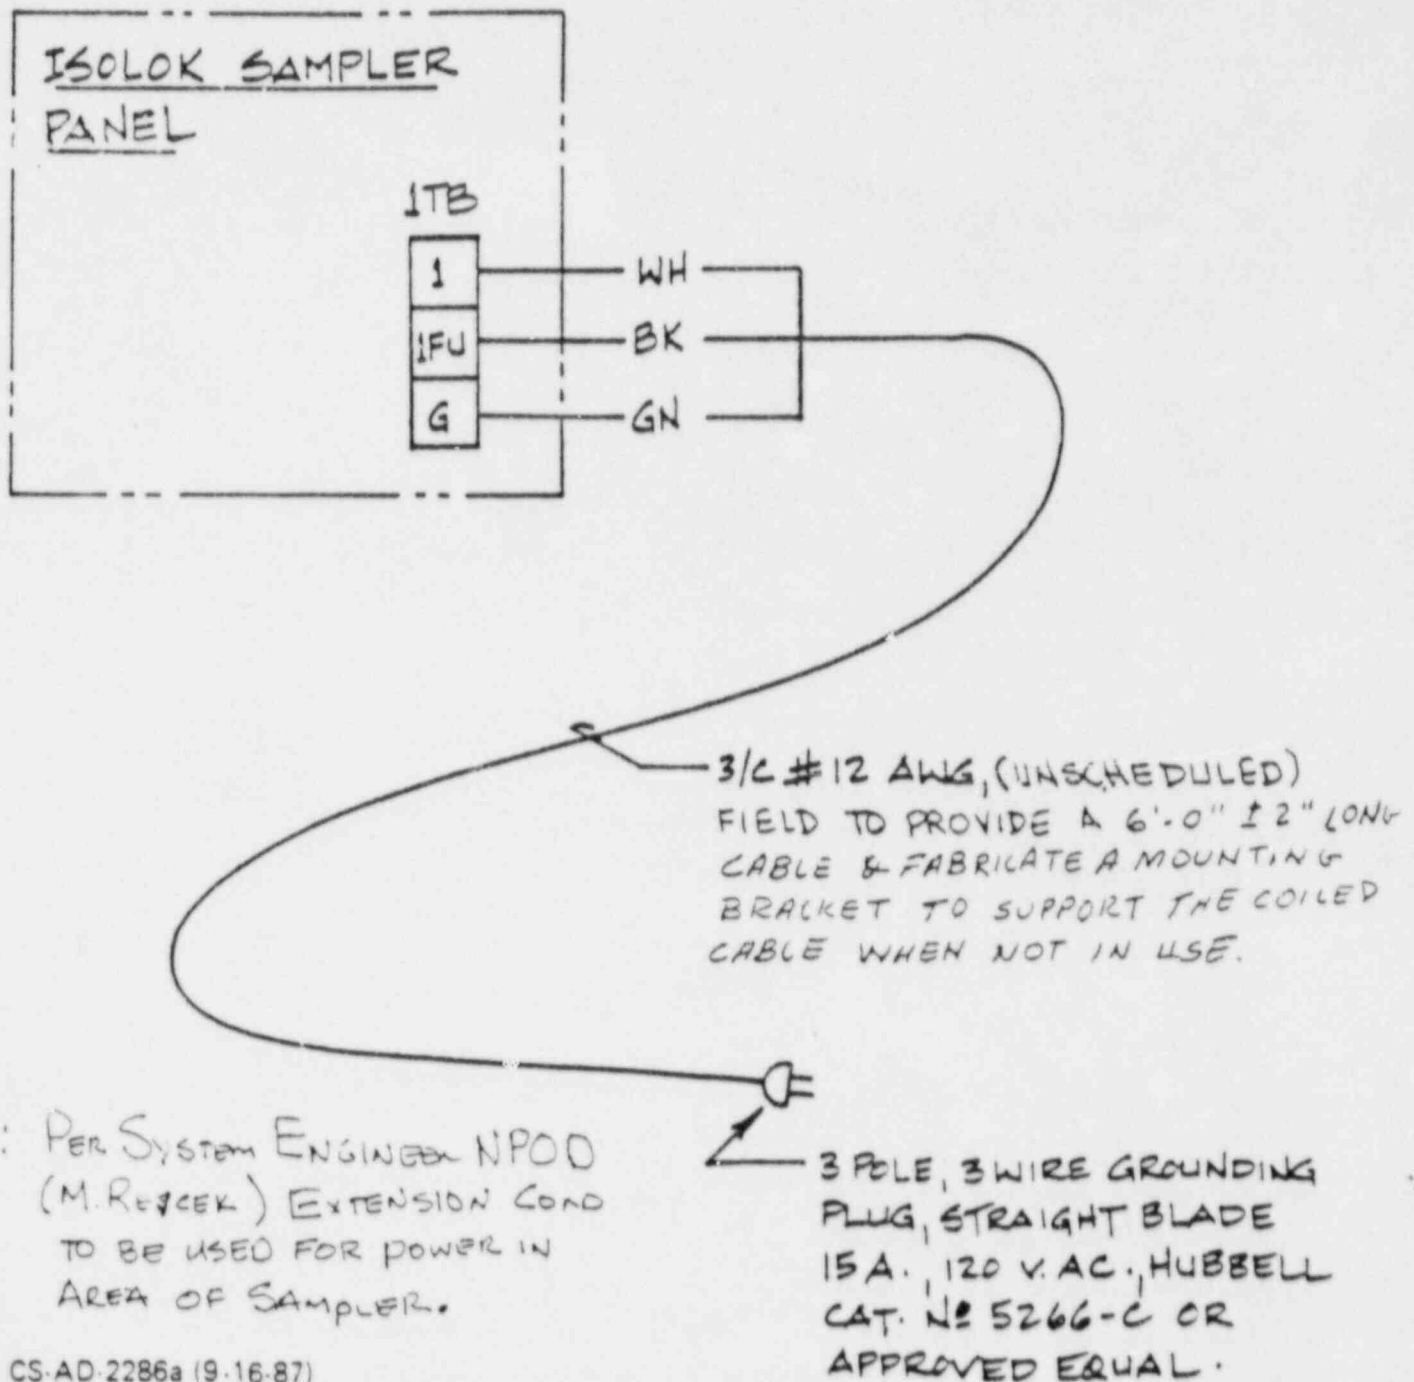 ISOLOK SAMPLER
PANEL
1TB
1
WH
1FU
BK
G
GN
3/C #12 AWG, (UNSCHEDULED)
FIELD TO PROVIDE A 6'-0" ± 2" LONG
CABLE & FABRICATE A MOUNTING
BRACKET TO SUPPORT THE COILED
CABLE WHEN NOT IN USE.
: PER SYSTEM ENGINEER NPOD
(M. ) EXTENSION CORD
TO BE USED FOR POWER IN
AREA OF SAMPLER.
3 POLE, 3 WIRE GROUNDING
PLUG, STRAIGHT BLADE
15 A., 120 V. AC., HUBBELL
CAT. Nº 5266-C OR
APPROVED EQUAL.
CS-AD-2286a (9-16-87)